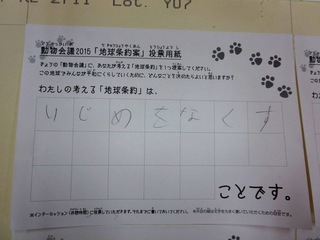 動物会議2015「地球条約案」投票用紙
きょうの「動物会議」に、あなたが考える「地球条約」を1つ提案してください。
この地球でみんなが平和にくらしていくために、どんなことを決めたらよいと思いますか？
わたしの考える「地球条約」は、
いじめをなくす
ことです。